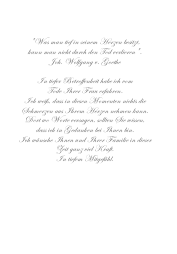 "Was man tief in seinem Herzen besitzt,
kann man nicht durch den Tod verlieren."
Joh. Wolfgang v. Goethe
In tiefer Betroffenheit habe ich vom
Tode Ihrer Frau erfahren.
Ich weiß, dass in diesen Momenten nichts die
Schmerzen aus Ihrem Herzen nehmen kann.
Dort wo Worte versagen, sollten Sie wissen,
dass ich in Gedanken bei Ihnen bin.
Ich wünsche Ihnen und Ihrer Familie in dieser
Zeit ganz viel Kraft.
In tiefem Mitgefühl.